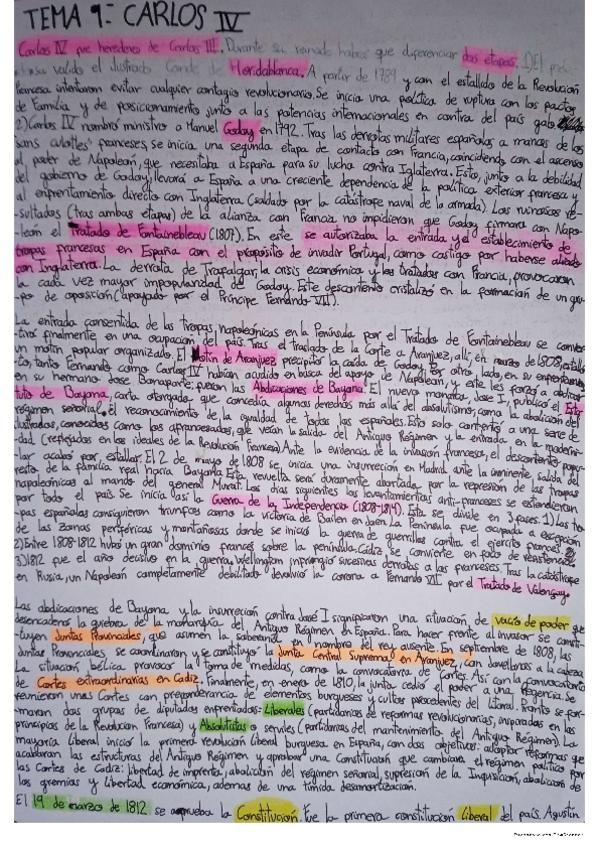 TEMA 9: CARLOS IV
Carlos IV fue heredero de Carlos III. Durante su reinado habrá que diferenciar dos etapas. 1)El
valido el ilustrado Conde de Floridablanca. A partir de 1789 y con el estallido de la Revolución
francesa intentaron evitar cualquier contagio revolucionario. Se inicia una política de ruptura con los pactos
de Familia y de posicionamiento junto a las potencias internacionales en contra del país galo
2)Carlos IV nombró ministro a Manuel Godoy en 1792. Tras las derrotas militares españolas a manos de los
sans culottes franceses, se inicia una segunda etapa de contacto con Francia, coincidendo con el ascenso
al poder de Napoleón, que necesitaba a España para su lucha contra Inglaterra. Esto, junto a la debilidad
del gobierno de Godoy, llevará a España a una creciente dependencia de la política exterior francesa y
al enfrentamiento directo con Inglaterra (saldado por la catástrofe naval de la armada). Los ruinosos re-
sultados (tras ambas etapas) de la alianza con Francia no impidieron que Godoy firmara con Napo-
león el Tratado de Fontainebleau (1807). En este se autorizaba la entrada y el establecimiento de
tropas francesas en España con el propósito de invadir Portugal, como castigo por haberse aliado
con Inglaterra. La derrota de Trafalgar, la crisis económica y los tratados con Francia, provocaron
la cada vez mayor impopularidad de Godoy. Este descontento cristalizó en la formación de un gru-
-po de oposición (apoyado por el Príncipe Fernando VII).
La entrada consentida de las tropas napoleónicas en la Península por el Tratado de Fontainebleau se conver-
-tiró finalmente en una ocupación del país. Tras el traslado de la Corte a Aranjuez, allí, en marzo de 1808, estalla
un motín popular organizado. El Motín de Aranjuez precipitó la caída de Godoy. Por otro lado, en su enfrentamien-
-to, tanto Fernando como Carlos IV habían acudido en busca del apoyo de Napoleón, y este les forzó a abdicar
en su hermano Jose Bonaparte: fueron las Abdicaciones de Bayona. El nuevo monarca, Jose I, publicó el Esta-
tuto de Bayona, carta otorgada que concedía algunos derechos más allá del absolutismo, como la abolición del
régimen señorial, el reconocimiento de la igualdad de todos los españoles. Esto solo contentó a una serie de
ilustrados, conocidos como los afrancesados, que veían la salida del Antiguo Régimen y la entrada en la moderni-
-dad (reflejados en los ideales de la Revolución Francesa). Ante la evidencia de la invasión francesa, el descontento popu-
-lar acabó por estallar. El 2 de mayo de 1808 se inicia una insurrección en Madrid ante la inminente salida del
resto de la familia real hacia Bayona. Esta revuelta será duramente abortada por la represión de las tropas
napoleónicas al mando del general Murat. Los días siguientes los levantamientos anti-franceses se extendieron
por todo el país. Se inicia así la Guerra de la Independencia (1808-1814). Esta se divide en 3 fases: 1) Las tro-
-pas españolas consiguieron triunfos como la victoria de Bailen en Jaen. La Península fue ocupada a excepción
de las zonas periféricas y montañosas donde se inició la guerra de guerrillas contra el ejército francés.
2)Entre 1808-1812 hubo un gran dominio francés sobre la península. Cádiz, se convierte en foco de resistencia.
3)1812 fue el año decisivo en la guerra, Wellington infringió sucesivas derrotas a las franceses. Tras la catástrofe
en Rusia, un Napoleón completamente debilitado devolvió la corona a Fernando VII por el Tratado de Valençay.
Las abdicaciones de Bayona y la insurrección contra José I significaron una situación, de vacío de poder que
desencadenó la quiebra de la monarquía del Antiguo Régimen en España. Para hacer frente al invasor se consti-
-tuyen Juntas Provinciales, que asumen la soberanía en nombre del rey ausente. En septiembre de 1808, las
Juntas Provinciales, se coordinaron y se constituyó la Junta Central Suprema en Aranjuez, con Jovellanos a la cabeza
La situación bélica provocó la toma de medidas, como la convocatoria de Cortes. Así con la convocatoria
de Cortes extraordinarias en Cadiz. Finalmente, en enero de 1810, la junta cedió el poder a una Regencia. Se
reunieron unas Cortes con preponderancia de elementos burgueses y cultos procedentes del litoral. Pronto se for-
-maron dos grupos de diputados enfrentados: Liberales (partidarios de reformas revolucionarias, inspiradas en los
principios de la Revolucion Francesa) y Absolutistas o serviles (partidarios del mantenimiento del Antiguo Régimen). La
mayoría liberal inició la primera revolución liberal burguesa en España, con dos objetivos: adoptar reformas que
acabaran las estructuras del Antiguo Régimen y aprobar una Constitución que cambiara el régimen político por
las Cortes de Cádiz: libertad de imprenta, abolición del régimen señorial, supresión de la Inquisición, abolición de
los gremios y libertad económica, ademas de una tímida desamortización.
El 19 de marzo de 1812 se aprueba la Constitución. Fue la primera constitución liberal del país. Agustín